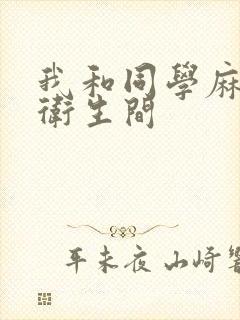 我和同學麻
衛生間
平未夜 山崎響